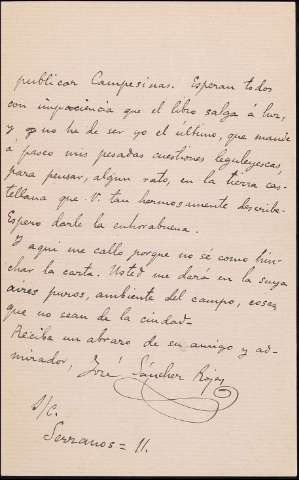 publicar Campesinas. Esperan todos
con impaciencia que el libro salga á luz,
y no he de ser yo el último, que mande
á paseo mis pesadas cuestiones leguleyescas,
para pensar, algun rato, en la tierra cas-
tellana que V. tan hermosamente describe.
Espero darle la enhorabuena.
Y aqui me callo porque no sé como hin-
char la carta. Usted me dará en la suya
aires puros, ambiente del campo, cosas
que no sean de la ciudad.
Reciba un abrazo de su amigo y ad-
mirador, José Sánchez Rojas
S/C.
Serranos = 11.